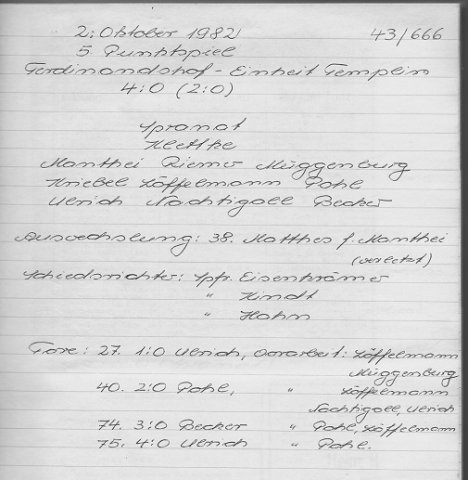 2. Oktober 1982 43/666
5. Punktspiel
Ferdinandshof - Einheit Templin
4:0 (2:0)
Spranot
Klettke
Manthei Riemer Müggenburg
Kriebel Löffelmann Pohl
Ulrich Nachtigall Becker
Auswechslung: 38. Matthes f. Manthei
(verletzt)
Schiedsrichter: Spfr. Eisenkrämer
" Hindt
" Hahn
Tore: 27. 1:0 Ulrich, Vorarbeit: Löffelmann
Müggenburg
40. 2:0 Pohl, " Löffelmann
Nachtigall, Ulrich
74. 3:0 Becker " Pohl, Löffelmann
75. 4:0 Ulrich " Pohl.